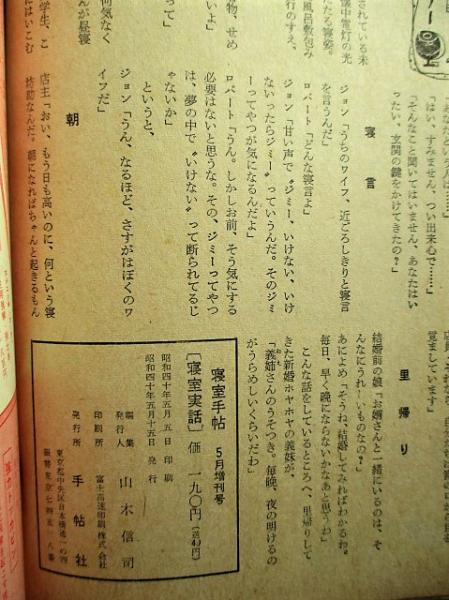 あなたという人は……」
「はい、すみません、つい出来心で……」
「そんなこと聞いてはいません、あなたはいったい、玄関の鍵をかけてきたの？」
寝言
ジョン「うちのワイフ、近ごろしきりと寝言
を言うんだ」
ロバート「どんな寝言よ」
ジョン「甘い声で〝ジミー、いけない、いけ
ないったらジミー〟っていうんだ。そのジミ
ーってやつが気になるんだよ」
ロバート「うん。しかしお前、そう気にする
必要はないと思うな。その、ジミーってやつ
は、夢の中で〝いけない〟って断られてるじ
ゃないか」
というと、
ジョン「うん、なるほど、さすがはぼくのワ
イフだ」
朝
店主「おい、もう日も高いのに、何という寝
坊助なんだ。朝になればちゃんと起きるもん
覚ましています」
里帰り
結婚前の娘「お婿さんと一緒にいるのは、そ
んなにうれしいものなの？」
あによめ「そうね、結婚してみればわかるわ。
毎日、早く晩にならないかなあと思うわ」
こんな話をしているところへ、里帰りして
きた新婚ホヤホヤの義妹が、
「義姉さんのうそつき。毎晩、夜の明けるの
がうらめしいくらいだわ」
寝室手帖 5月増刊号
〔寝室実話〕価 一九〇円〔送40円〕
昭和四十年五月五日 印刷
昭和四十年五月十五日 発行
編集
発行人 山本信司
印刷所 富士高速印刷株式会社
発行所 手帖社
東京都中央区日本橋通一の四
振替東京七四五八番